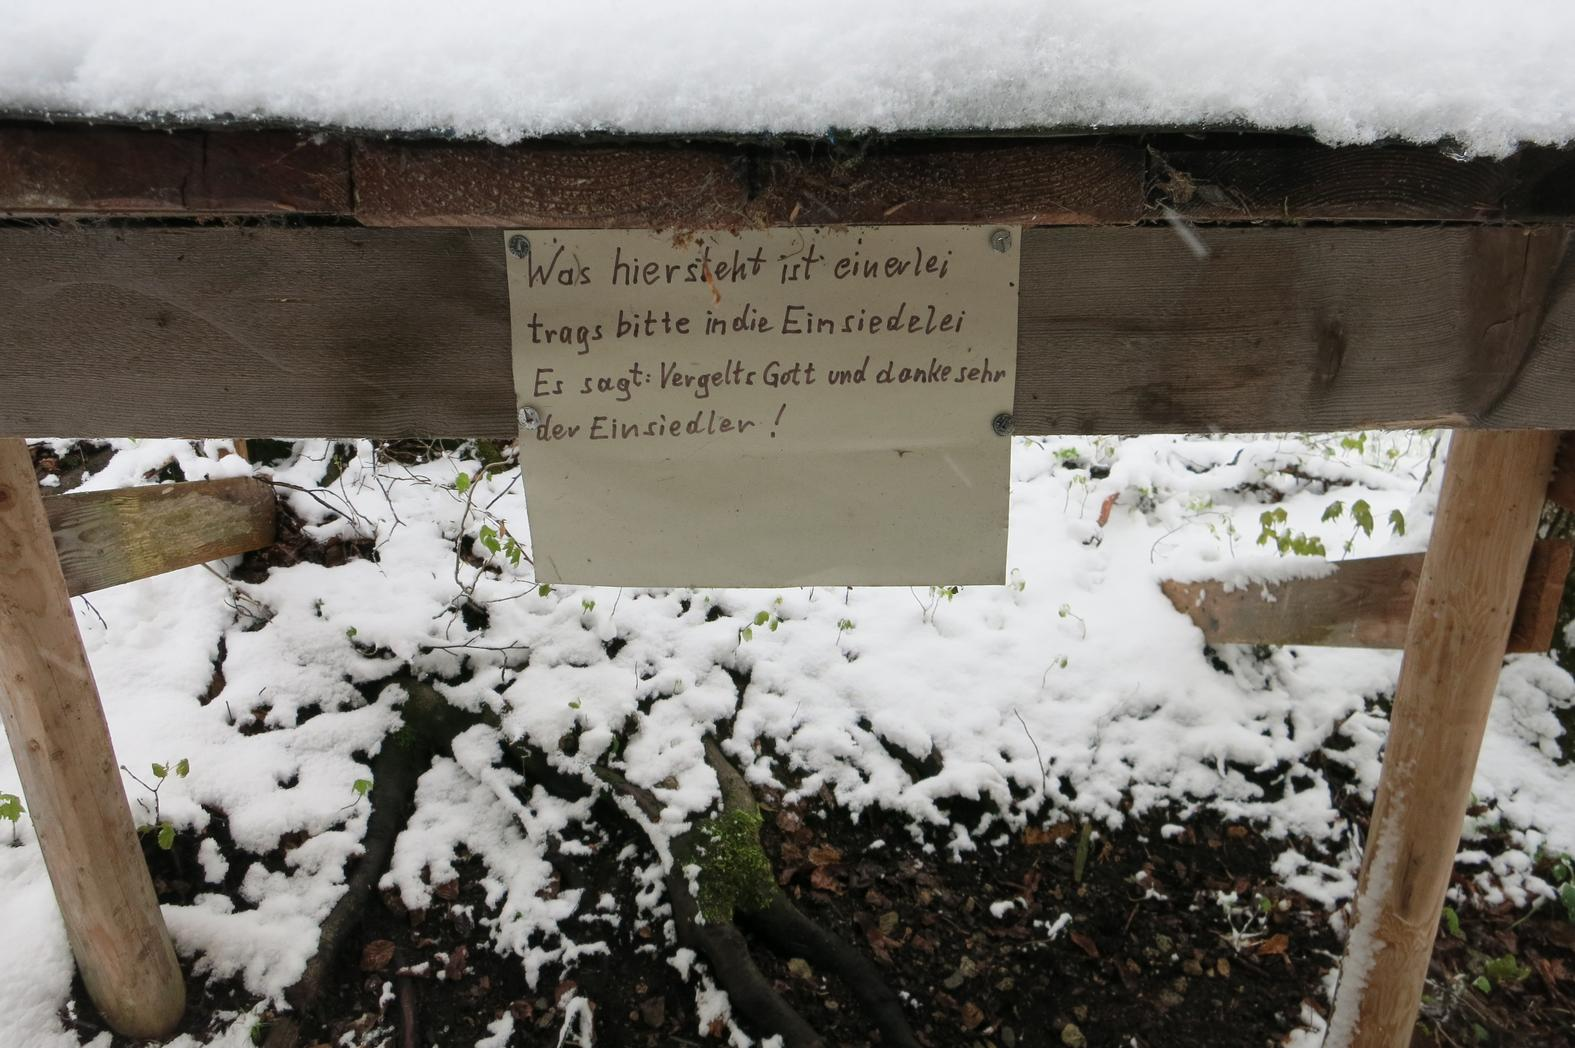 Was hier steht ist einerlei
trags bitte in die Einsiedelei
Es sagt: Vergelts Gott und danke sehr
der Einsiedler !